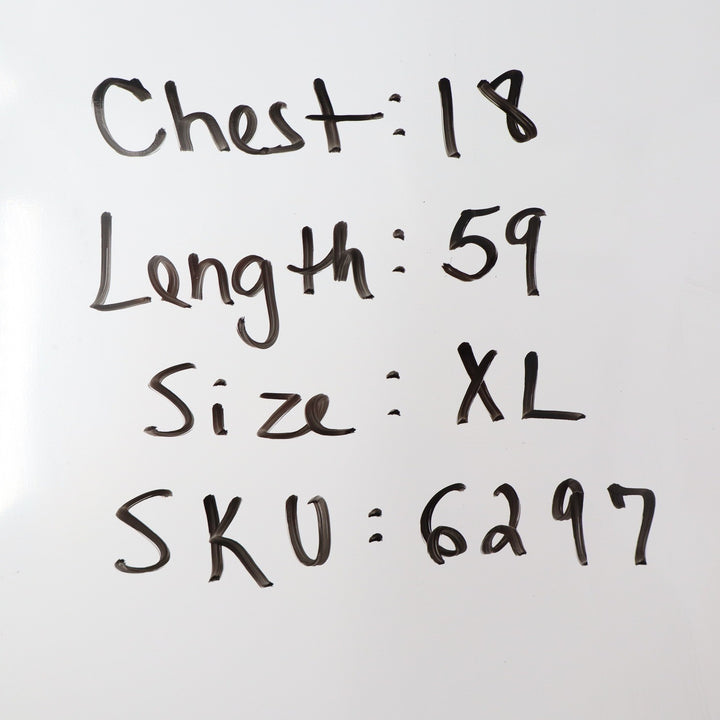 Chest: 18
Length: 59
Size: XL
SKU: 6297